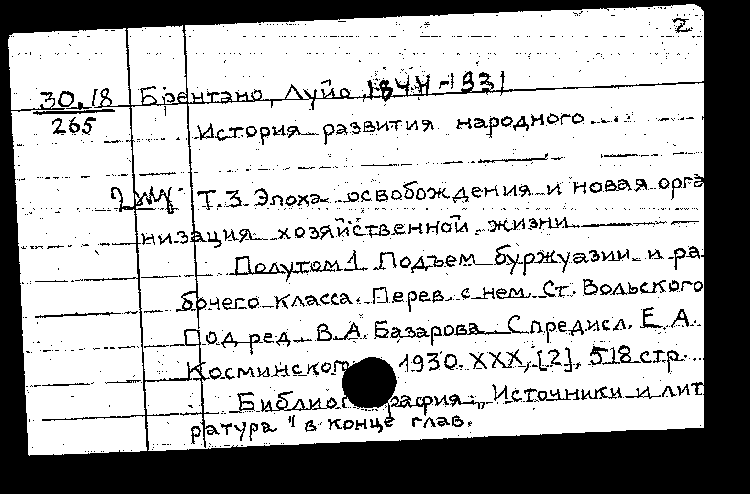 2
30.18 Брентано, Луйо 1844-1931
265
История развития народного...
Т. 3 Эпоха освобождения и новая орга
низация хозяйственной жизни
Полутом 1. Подъем буржуазии и ра
бочего класса. Перев. с нем. Ст. Вольского
Под ред. В. А. Базарова. С предисл. Е. А.
Косминского 1930. XXX, [2], 518 стр.
Библиография: „Источники и лит
ратура" в конце глав.